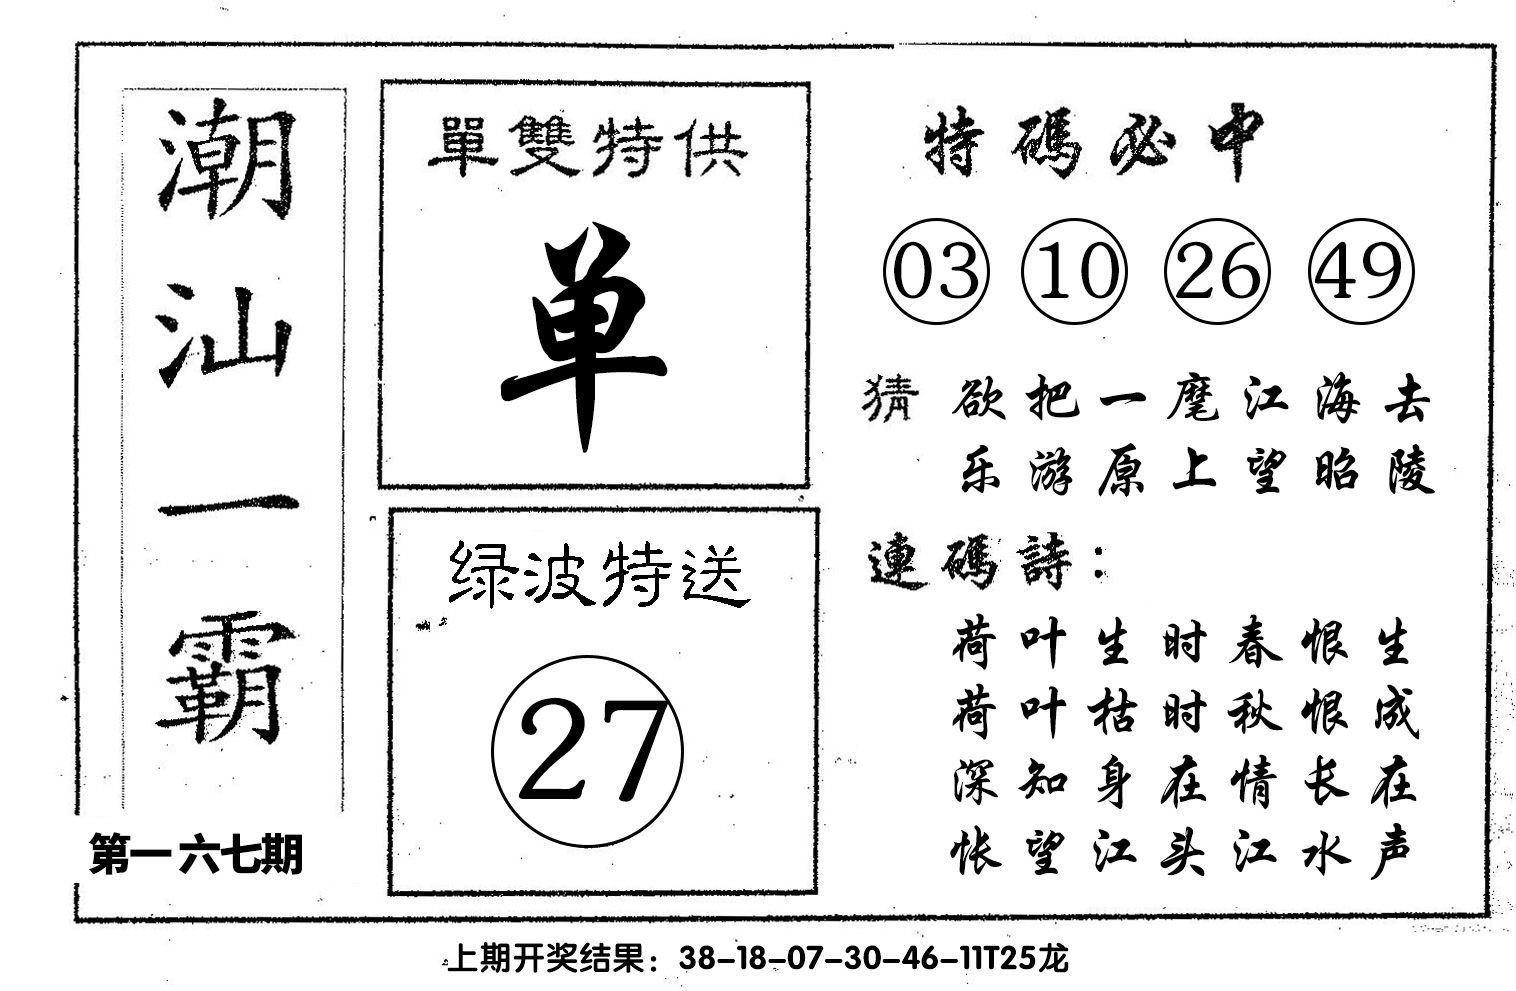 潮汕一霸
第一六七期
單雙特供
单
绿波特送
27
特碼必中
03 10 26 49
猜 欲把一麾江海去
乐游原上望昭陵
連碼詩：
荷叶生时春恨生
荷叶枯时秋恨成
深知身在情长在
怅望江头江水声
上期开奖结果：38-18-07-30-46-11T25龙